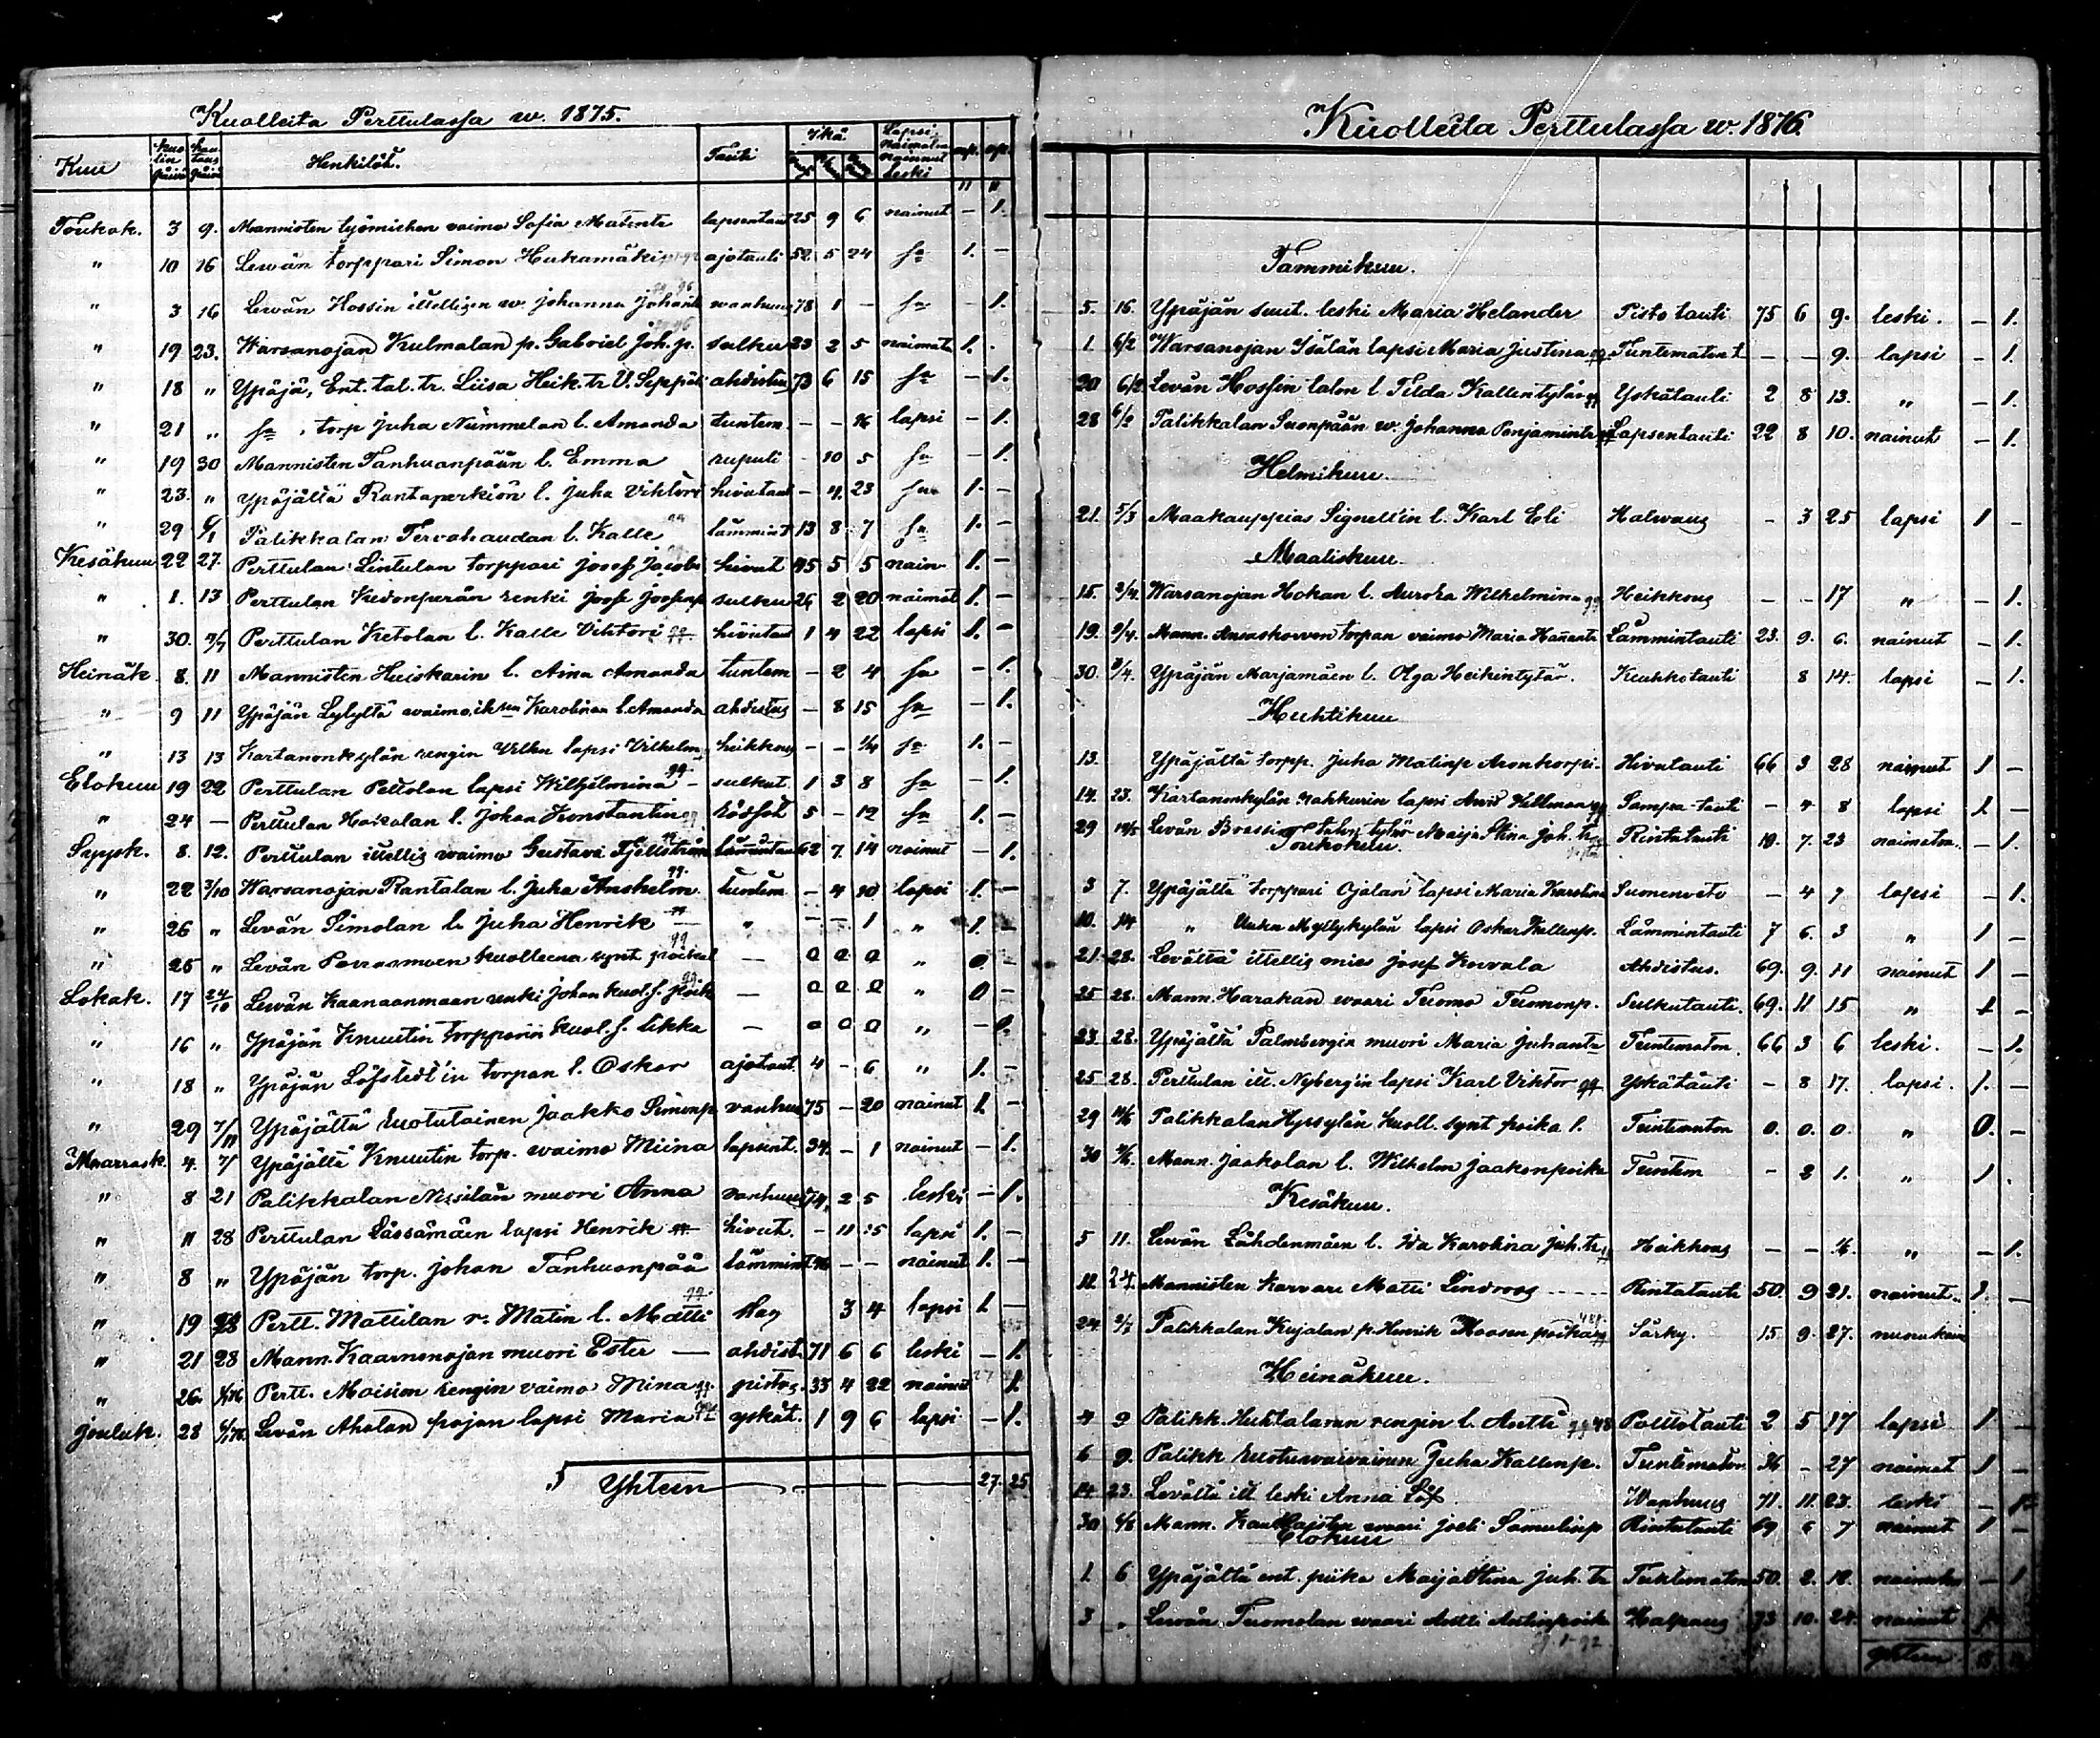 Kuolleita Perttulassa w. 1875.
Kuu Kuolinpäivä Hautauspäivä Henkilöt. Tauti Ikä Lapsi naimaton nainut leski mp. vp.
Toukok. 3 9. Mannisten työmiehen vaimo Sofia Matintr lapsentaut 25 9 6 nainut – 1.
" 10 16 Lewän torppari Simon Hukamäki ajotauti 52 5 24 sa 1. –
" 3 16 Lewän Hossin itsellisen w. Johanna wanhuus 78 1 – sa – 1.
" 19 23. Warsanojan Kulmalan p. Gabriel Joh. p. sulku 23 2 5 naimato 1.
" 18 " Ypäjä, Ent. tal. tr. Liisa Heik. tr. V. Seppälä ahdistus 73 6 15 sa – 1.
" 21 " sa torp Juha Nummelan l. Amanda tuntem. – – 16 lapsi – 1.
" 19 30 Mannisten Tanhuanpään l. Emma rupuli – 10 5 sa – 1.
" 23. " Ypäjältä Rantaperkiön l. Juha Viktori hivutaut – 4 23 sa 1. –
" 29 6/1 Palikkalan Tervahaudan l. Kalle lämmint 13 8 7 sa 1. –
Kesäkuu 22 27. Perttulan Lintulan torppari Josef Jacobs hivut 45 5 5 nain 1. –
" 1. 13 Perttulan Kedonperän renki Josef Josefinp sulku 26 2 20 naimat 1. –
" 30. Perttulan Ketolan l. Kalle Viktori hivutaut 1 4 22 lapsi 1. –
Heinäk. 8. 11 Mannisten Huiskarin l. Aina Amanda tuntem – 2 4 sa – 1.
" 9 11 Ypäjän Lylyltä Karolinan l. Amanda ahdistus – 8 15 sa – 1.
" 13 13 Kartanonkylän rengin Vilhu lapsi Vilhelm heikkous – – 1/4 sa 1. –
Elokuu 19 22 Perttulan Peltolan lapsi Wilhelmina – sulkut. 1 3 8 sa – 1.
" 24 – Perttulan Hakolan l. Johan Konstantin rödsot 5 – 12 sa 1. –
Syysk. 8. 12. Perttulan itsellis waimo Gustava Fjellström 62 7 14 nainut – 1.
" 22 3/10 Warsanojan Rantalan l. Juha Anshelm tuntem – 4 10 lapsi 1. –
" 26 " Levän Simolan l. Juha Henrik " – – 1 " 1. –
" 25 " Levän Porrasmaen kuolleena synt. poika – 0 0 0 " 0 –
Lokak. 17 24/10 Lewän Kaanaanmaan renki Johan kuol. s. poik – 0 0 0 " 0 –
" 16 " Ypäjän Knuutin torpparin kuol. s. likka – 0 0 0 " – 0.
" 18 " Ypäjän Löfstedt'in torpan l. Oskar ajotaut. 4 – 6 " 1. –
" 29 7/11 Ypäjältä Ruotulainen Jaakko Simonp vanhuu 75 – 20 nainut 1 –
Marrask. 4. 7/ Ypäjältä Knuutin torp. waimo Miina lapsint. 34. – 1 nainut – 1.
" 8 21 Palikkalan Nissilän muori Anna vanhuus 74 2 5 leski – 1.
" 11 28 Perttulan Lassämäen lapsi Henrik hivut. – 11 15 lapsi 1. –
" 8 " Ypäjän torp. Johan Tanhuanpää lämmint – – nainut 1. –
" 19 28 Pertt. Mattilan r. Matin l. Matti slag 3 4 lapsi 1 –
" 21 28 Mann. Kaarnonojan muori Ester – ahdist. 71 6 6 leski – 1.
" 26. 1/1 76 Pertt. Moision rengin vaimo Mina pistos. 33 4 22 nainut 1
Jouluk. 28 6/1 76. Levän Aholan pojan lapsi Maria yskät. 1 9 6 lapsi – 1.
Yhteen 27. 25
Kuolleita Perttulassa w. 1876.
Tammikuu.
5. 16. Ypäjän suut. leski Maria Helander Pistotauti 75 6 9. leski. – 1.
1. 6/2 Warsanojan Isälän lapsi Maria Justina Tuntematon t – – 9. lapsi – 1.
20 6/2. Levän Hossin talon l Tilda Kallentytär Yskätauti 2 8 13. " – 1.
28 6/2 Palikkalan Suonpään w. Johanna Penjamintr Lapsentauti 22 8 10. nainut – 1.
Helmikuu.
21. 5/3 Maakauppias Signell'in l. Karl Eli Halwaus – 3 25 lapsi 1 –
Maaliskuu.
15. 2/4. Warsanojan Hokan l. Aurora Wilhelmina Heikkous – – 17 " – 1.
19. 9/4. Mann. torpan vaimo Maria Lämmintauti 23. 9. 6. nainut – 1.
30. 3/4. Ypäjän Marjamäen l. Olga Heikintytär. Keuhkotauti 8 14. lapsi – 1.
Huhtikuu
13. Ypäjältä torpp. Juha Matinp Aronkorpi. Hivutauti 66 3 28 nainut 1 –
14. 23. Kartanonkylän Rahkurin lapsi Hellman Sampa-tauti – 4 8 lapsi 1 –
29 14/5 Levän Brassin talon tytär Maija Stina Joh. tr Rintatauti 19. 7. 23 naimaton. – 1.
Toukokuu.
3 7. Ypäjältä torppari Ojalan lapsi Maria Karolina Suonenveto – 4 7 lapsi – 1.
10. 14 " Uuden Myllykylän lapsi Oskar Kallenp. Lämmintauti 7 6. 3 " 1 –
21. 28. Levältä itsellis mies Josef Kovala Ahdistus. 69. 9. 11 nainut 1 –
25 28. Mann. Harakan waari Tuomo Tuomonp. Sulkutauti. 69. 11 15 " 1 –
23. 28. Ypäjältä Palmbergin muori Maria Juhantr Tuntematon. 66 3 6 leski. – 1.
25 28. Perttulan itt. Nyberg'in lapsi Karl Viktor Yskätauti – 8 17. lapsi. 1. –
29 Palikkalan Hyssylän kuoll. synt poika l. Tuntematon 0. 0. 0. " 0. –
30 Mann. Jaakolan l. Wilhelm Jaakonpoika Tuntem – 2 1. " 1.
Kesäkuu.
5 11. Lewän Lähdenmäen l. Ida Karolina Juh. tr Heikkous – – " – 1.
11. 24. Mannisten Karvari Matti Lindroos Rintatauti 50. 9 21. nainut. 1. –
24. 2/7 Palikkalan Kujalan p. Henrik Moosen poika Särky. 15 9. 27.
Heinäkuu.
4 9 Palikk. Huhtalavan rengin l. Antti Polttotauti 2 5 17 lapsi 1 –
6 9. Palikk ruotuvaivainen Juha Kallenp. Tuntematon 36 – 27 naimat 1 –
14. 23. Levältä itt leski Anna Löf Wanhuus 71. 11. 23. leski – 1
30 6/8 Mann. waari Joeli Samulinp Rintatauti 69 6 7 nainut 1 –
Elokuu
1. 6 Ypäjältä ent. piika Maija Stina Juh. tr Tuntematon 50. 2. 12. – 1
3 " Lewän Tuomolan waari Antti Antinpoika Halpaus 73 10. 24. nainut 1
Yhteen